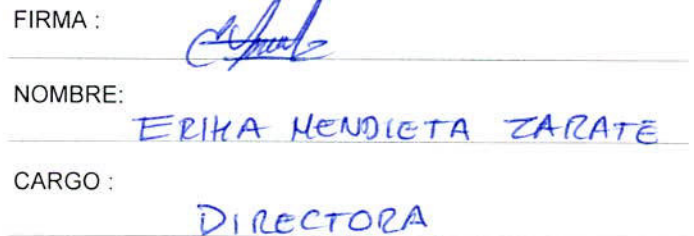 FIRMA :
NOMBRE:
ERIKA MENDIETA ZARATE
CARGO :
DIRECTORA